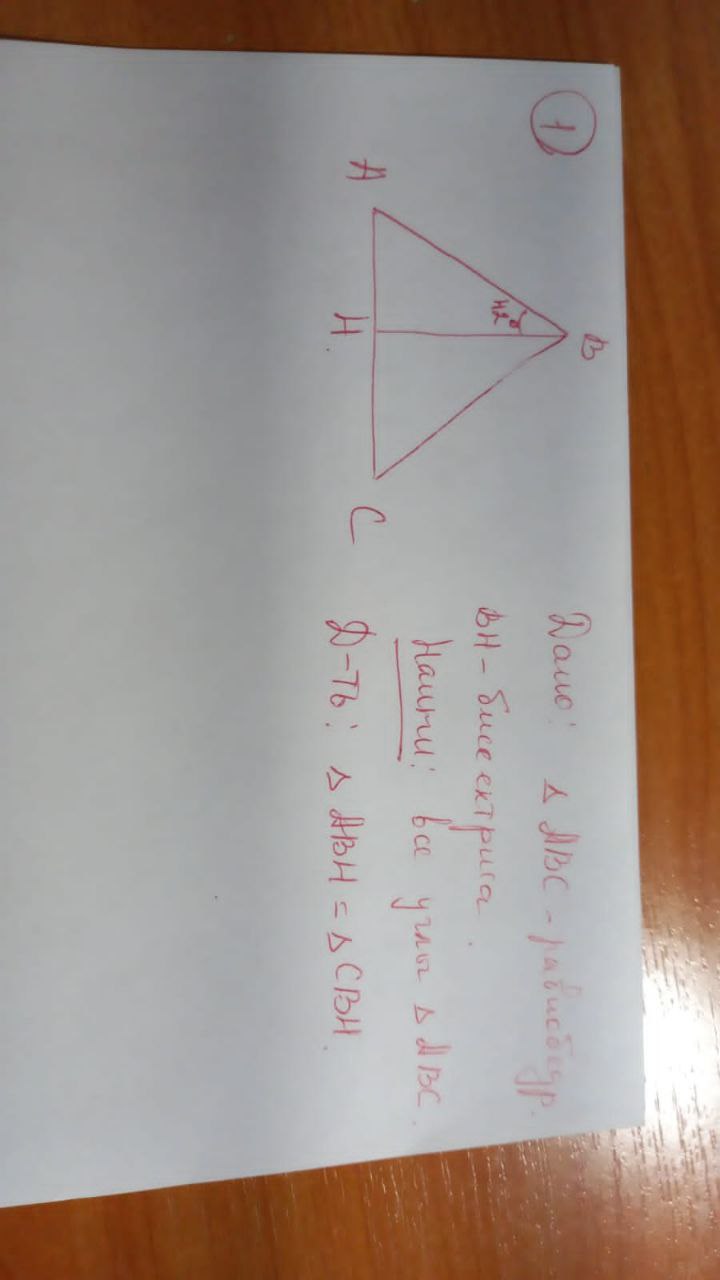 1
B
42°
A
H
C
Дано: Δ ABC - равнобедр.
BH - биссектриса.
Найти: все углы Δ ABC.
Д-ть: Δ ABH = Δ CBH.